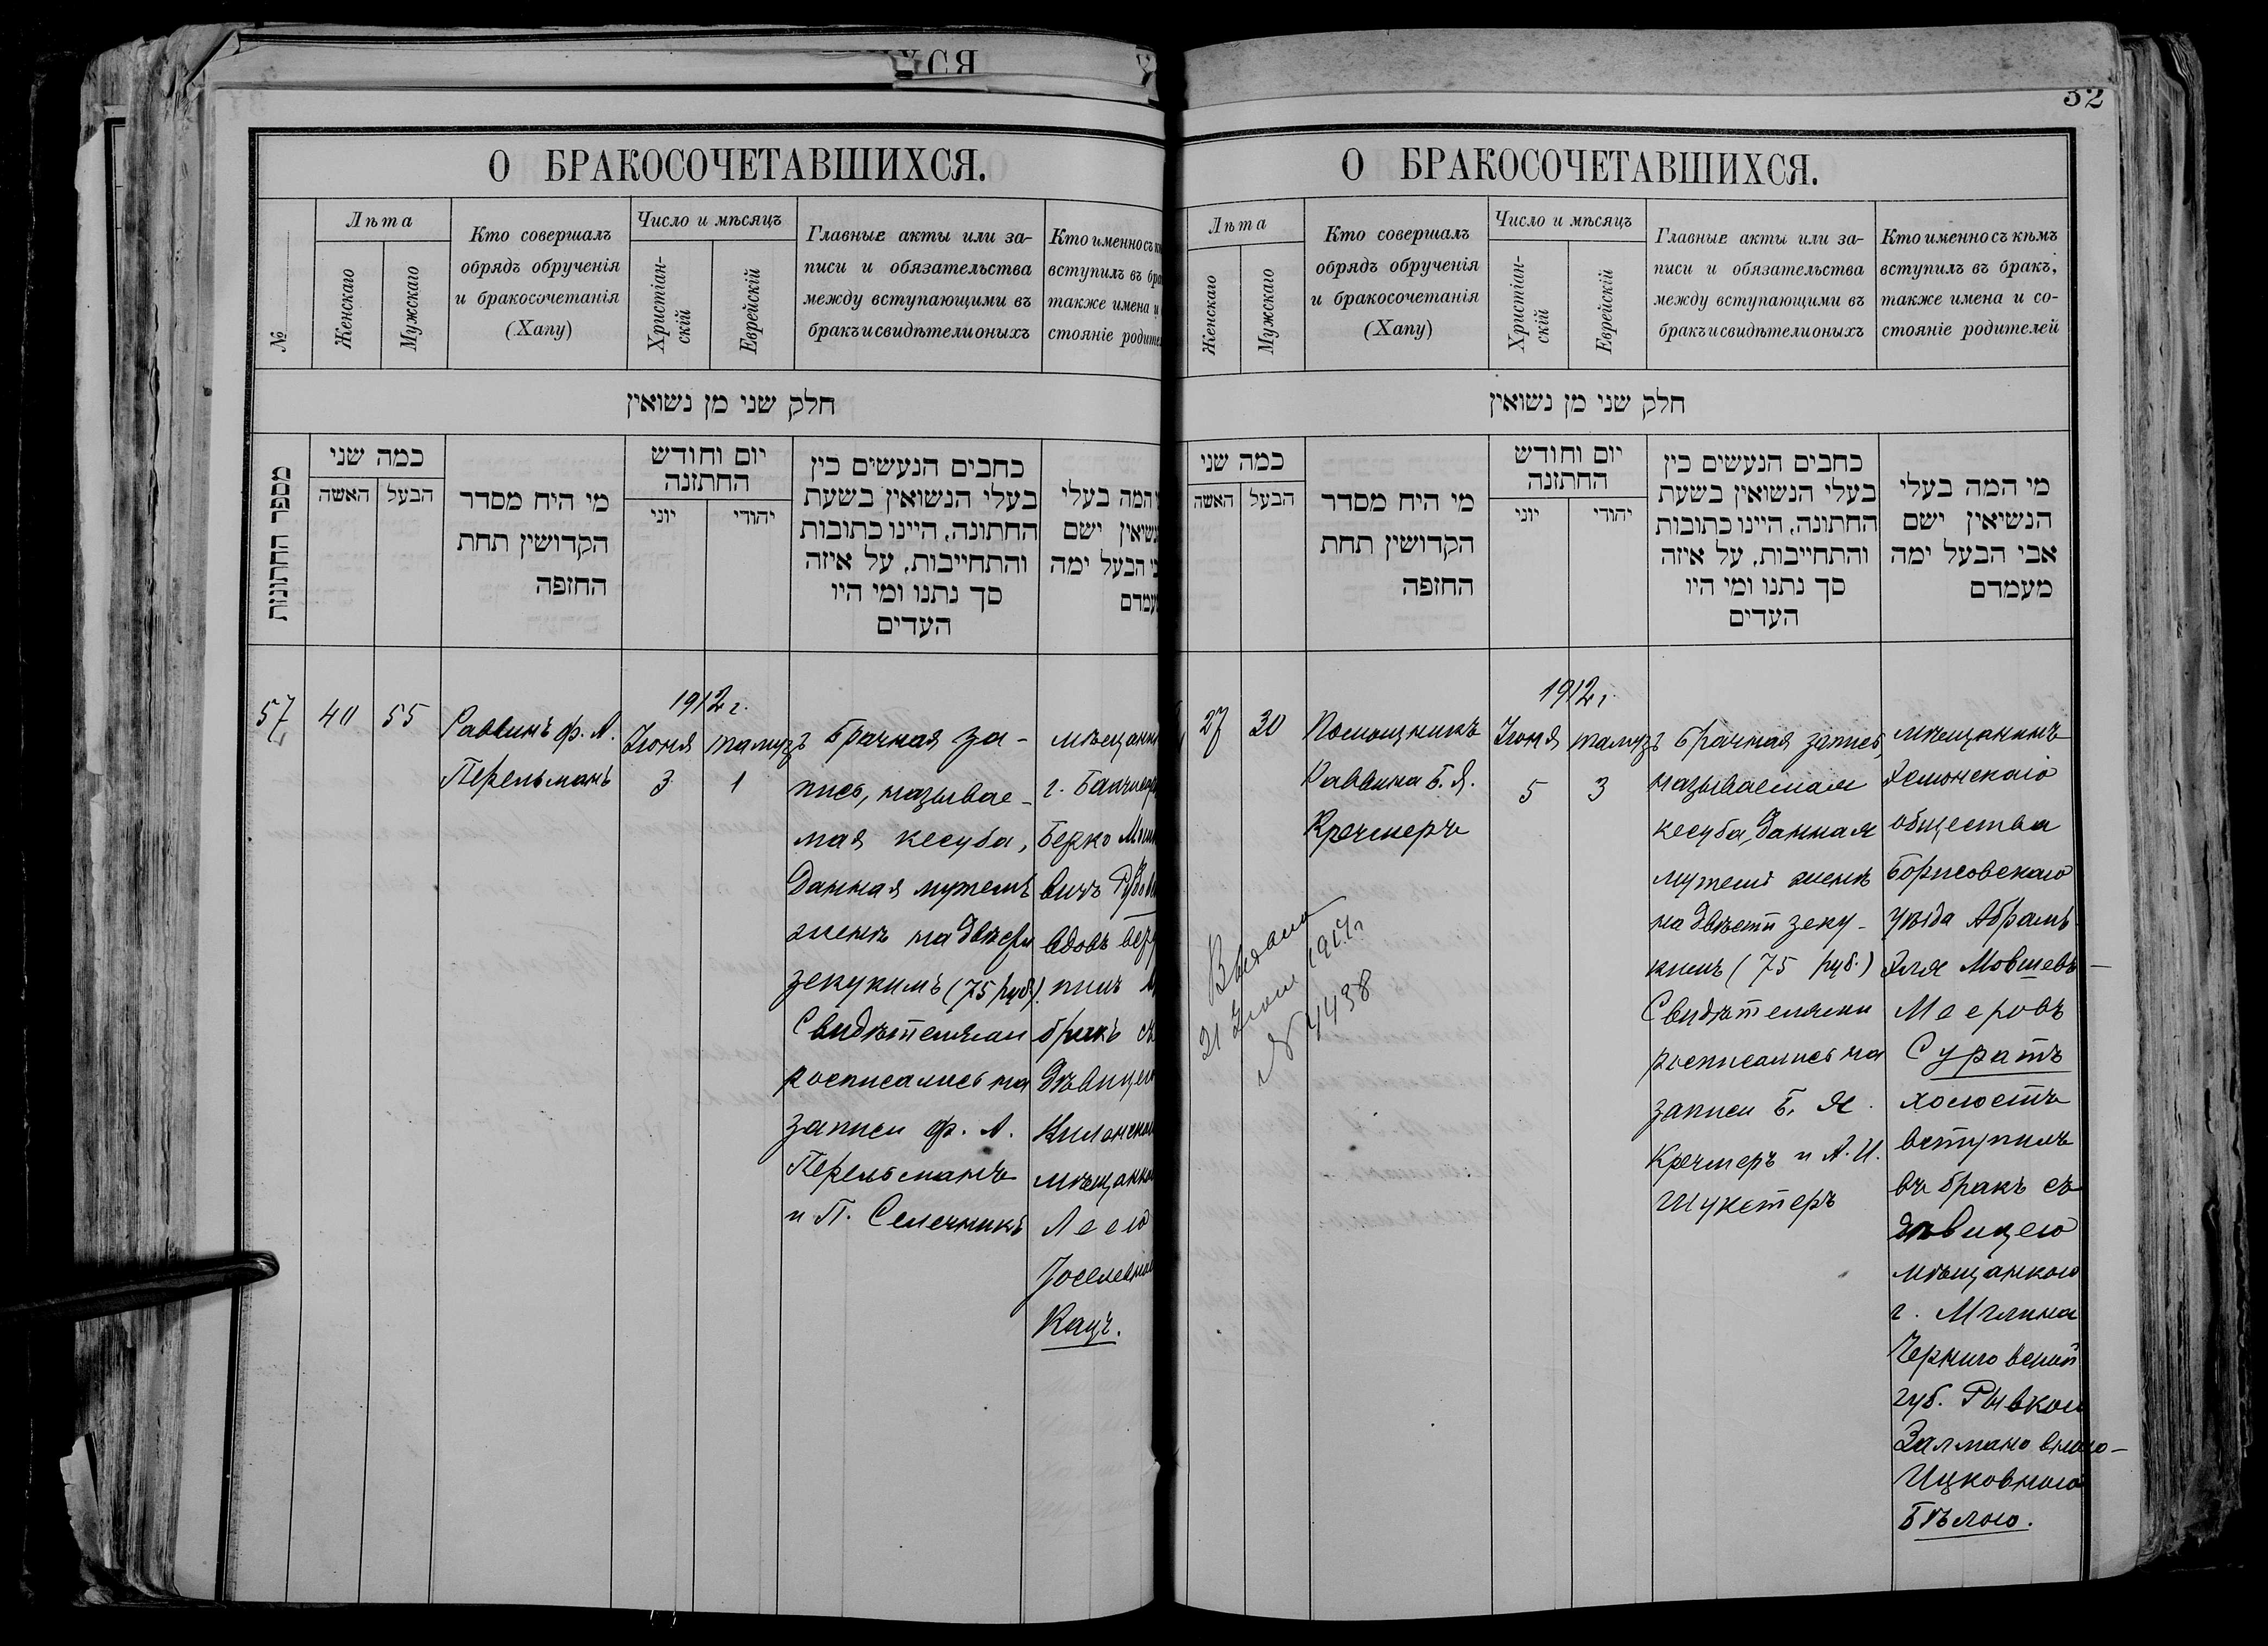 ХСЯ
О БРАКОСОЧЕТАВШИХСЯ.
№
Лѣта
Женскаго
Мужскаго
Кто совершалъ
обрядъ обрученія
и бракосочетанія
(Хапу)
Число и мѣсяцъ
Христіан-
скій
Еврейскій
Главные акты или за-
писи и обязательства
между вступающими въ
бракъ и свидѣтели оныхъ
Кто именно съ
вступилъ въ
также имена и
стояніе
חלק שני מן נשואין
מספר החתונות
כמה שני
האשה
הבעל
מי היח מסדר
הקדושין תחת
החזפה
יום וחודש
החתזנה
יוני
יהודי
כחבים הנעשים כין
בעלי הנשואין בשעת
החתונה, היינו כתובות
והתחייבות, על איזה
סך נתנו ומי היו
העדים
המה בעלי
ישם
הבעל ימה
57
40
55
Раввинъ Ф. А.
Перельманъ
1912 г.
Іюня
3
тамузъ
1
Брачная за-
пись, называе-
мая кесуба,
данная мужемъ
женѣ на двѣсти
зекукимъ (75 руб).
Свидѣтелями
росписались на
записи Ф. А.
Перельманъ
и П. Селечникъ
г.
Берко
вичъ
вдовъ
бракъ
Леею
Кацъ.
32
О БРАКОСОЧЕТАВШИХСЯ.
Лѣта
Женскаго
Мужскаго
Кто совершалъ
обрядъ обрученія
и бракосочетанія
(Хапу)
Число и мѣсяцъ
Христіан-
скій
Еврейскій
Главные акты или за-
писи и обязательства
между вступающими въ
бракъ и свидѣтели оныхъ
Кто именно съ кѣмъ
вступилъ въ бракъ,
также имена и со-
стояніе родителей
חלק שני מן נשואין
כמה שני
האשה
הבעל
מי היח מסדר
הקדושין תחת
החזפה
יום וחודש
החתזנה
יוני
יהודי
כחבים הנעשים כין
בעלי הנשואין בשעת
החתונה, היינו כתובות
והתחייבות, על איזה
סך נתנו ומי היו
העדים
מי המה בעלי
הנשיאין ישם
אבי הבעל ימה
מעמדם
27
30
Помощникъ
Раввина Б. Я.
Кречмеръ
1912 г.
Іюня
5
тамузъ
3
Брачная запись,
называемая
кесуба, данная
мужемъ женѣ
на двѣсти зеку-
кимъ (75 руб.)
Свидѣтелями
росписались на
записи Б. Я.
Кречмеръ и А. И.
Шукстеръ
мѣщанинъ
общества
Борисовскаго
уѣзда Абрамъ
Эля Мовшевъ-
Мееровъ
Суратъ
холостъ
вступилъ
въ бракъ съ
дѣвицею
мѣщанкою
г. Мглина
Черниговской
губ. Рывкою
Залмановною-
Ицковною
Бѣлою.
Выдано
21 1914 г.
№ 4438